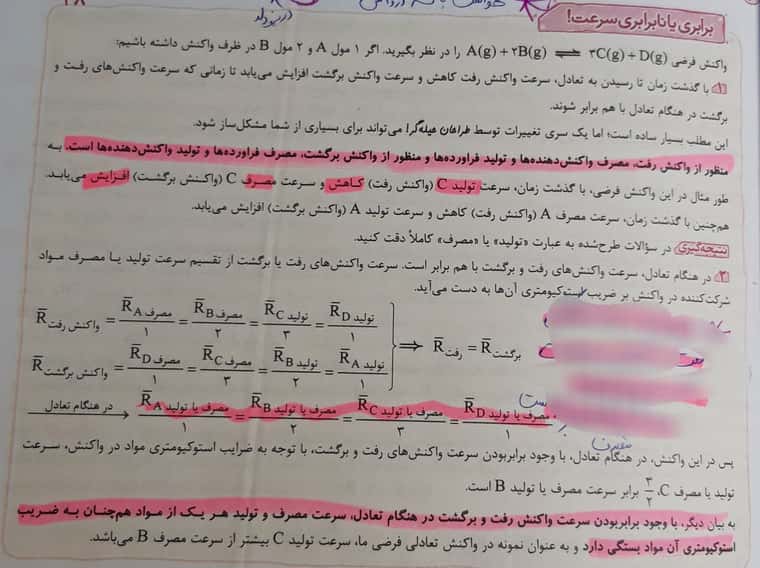 برابری یا نابرابری سرعت!
واکنش فرضی A(g) + ۲B(g) ⇌ ۳C(g) + D(g) را در نظر بگیرید. اگر ۱ مول A و ۲ مول B در ظرف واکنش داشته باشیم:
۱ با گذشت زمان تا رسیدن به تعادل، سرعت واکنش رفت کاهش و سرعت واکنش برگشت افزایش می‌یابد تا زمانی که سرعت واکنش‌های رفت و
برگشت در هنگام تعادل با هم برابر شوند.
این مطلب بسیار ساده است؛ اما یک سری تغییرات توسط طراحان حیله‌گر! می‌تواند برای بسیاری از شما مشکل‌ساز شود.
منظور از واکنش رفت، مصرف واکنش‌دهنده‌ها و تولید فراورده‌ها و منظور از واکنش برگشت، مصرف فراورده‌ها و تولید واکنش‌دهنده‌ها است. به
طور مثال در این واکنش فرضی، با گذشت زمان، سرعت تولید C (واکنش رفت) کاهش و سرعت مصرف C (واکنش برگشت) افزایش می‌یابد.
هم‌چنین با گذشت زمان، سرعت مصرف A (واکنش رفت) کاهش و سرعت تولید A (واکنش برگشت) افزایش می‌یابد.
نتیجه‌گیری در سؤالات طرح‌شده به عبارت «تولید» یا «مصرف» کاملاً دقت کنید.
۲ در هنگام تعادل، سرعت واکنش‌های رفت و برگشت با هم برابر است. سرعت واکنش‌های رفت یا برگشت از تقسیم سرعت تولید یا مصرف مواد
شرکت‌کننده در واکنش بر ضریب استوکیومتری آن‌ها به دست می‌آید.
R̄ واکنش رفت = R̄A مصرف / ۱ = R̄B مصرف / ۲ = R̄C تولید / ۳ = R̄D تولید / ۱
⇒ R̄ رفت = R̄ برگشت
R̄ واکنش برگشت = R̄D مصرف / ۱ = R̄C مصرف / ۳ = R̄B تولید / ۲ = R̄A تولید / ۱
در هنگام تعادل → R̄A مصرف یا تولید / ۱ = R̄B مصرف یا تولید / ۲ = R̄C مصرف یا تولید / ۳ = R̄D مصرف یا تولید / ۱
پس در این واکنش، در هنگام تعادل، با وجود برابربودن سرعت واکنش‌های رفت و برگشت، با توجه به ضرایب استوکیومتری مواد در واکنش، سرعت
تولید یا مصرف C، ۳/۲ برابر سرعت مصرف یا تولید B است.
به بیان دیگر، با وجود برابربودن سرعت واکنش رفت و برگشت در هنگام تعادل، سرعت مصرف و تولید هر یک از مواد هم‌چنان به ضریب
استوکیومتری آن مواد بستگی دارد و به عنوان نمونه در واکنش تعادلی فرضی ما، سرعت تولید C بیشتر از سرعت مصرف B می‌باشد.